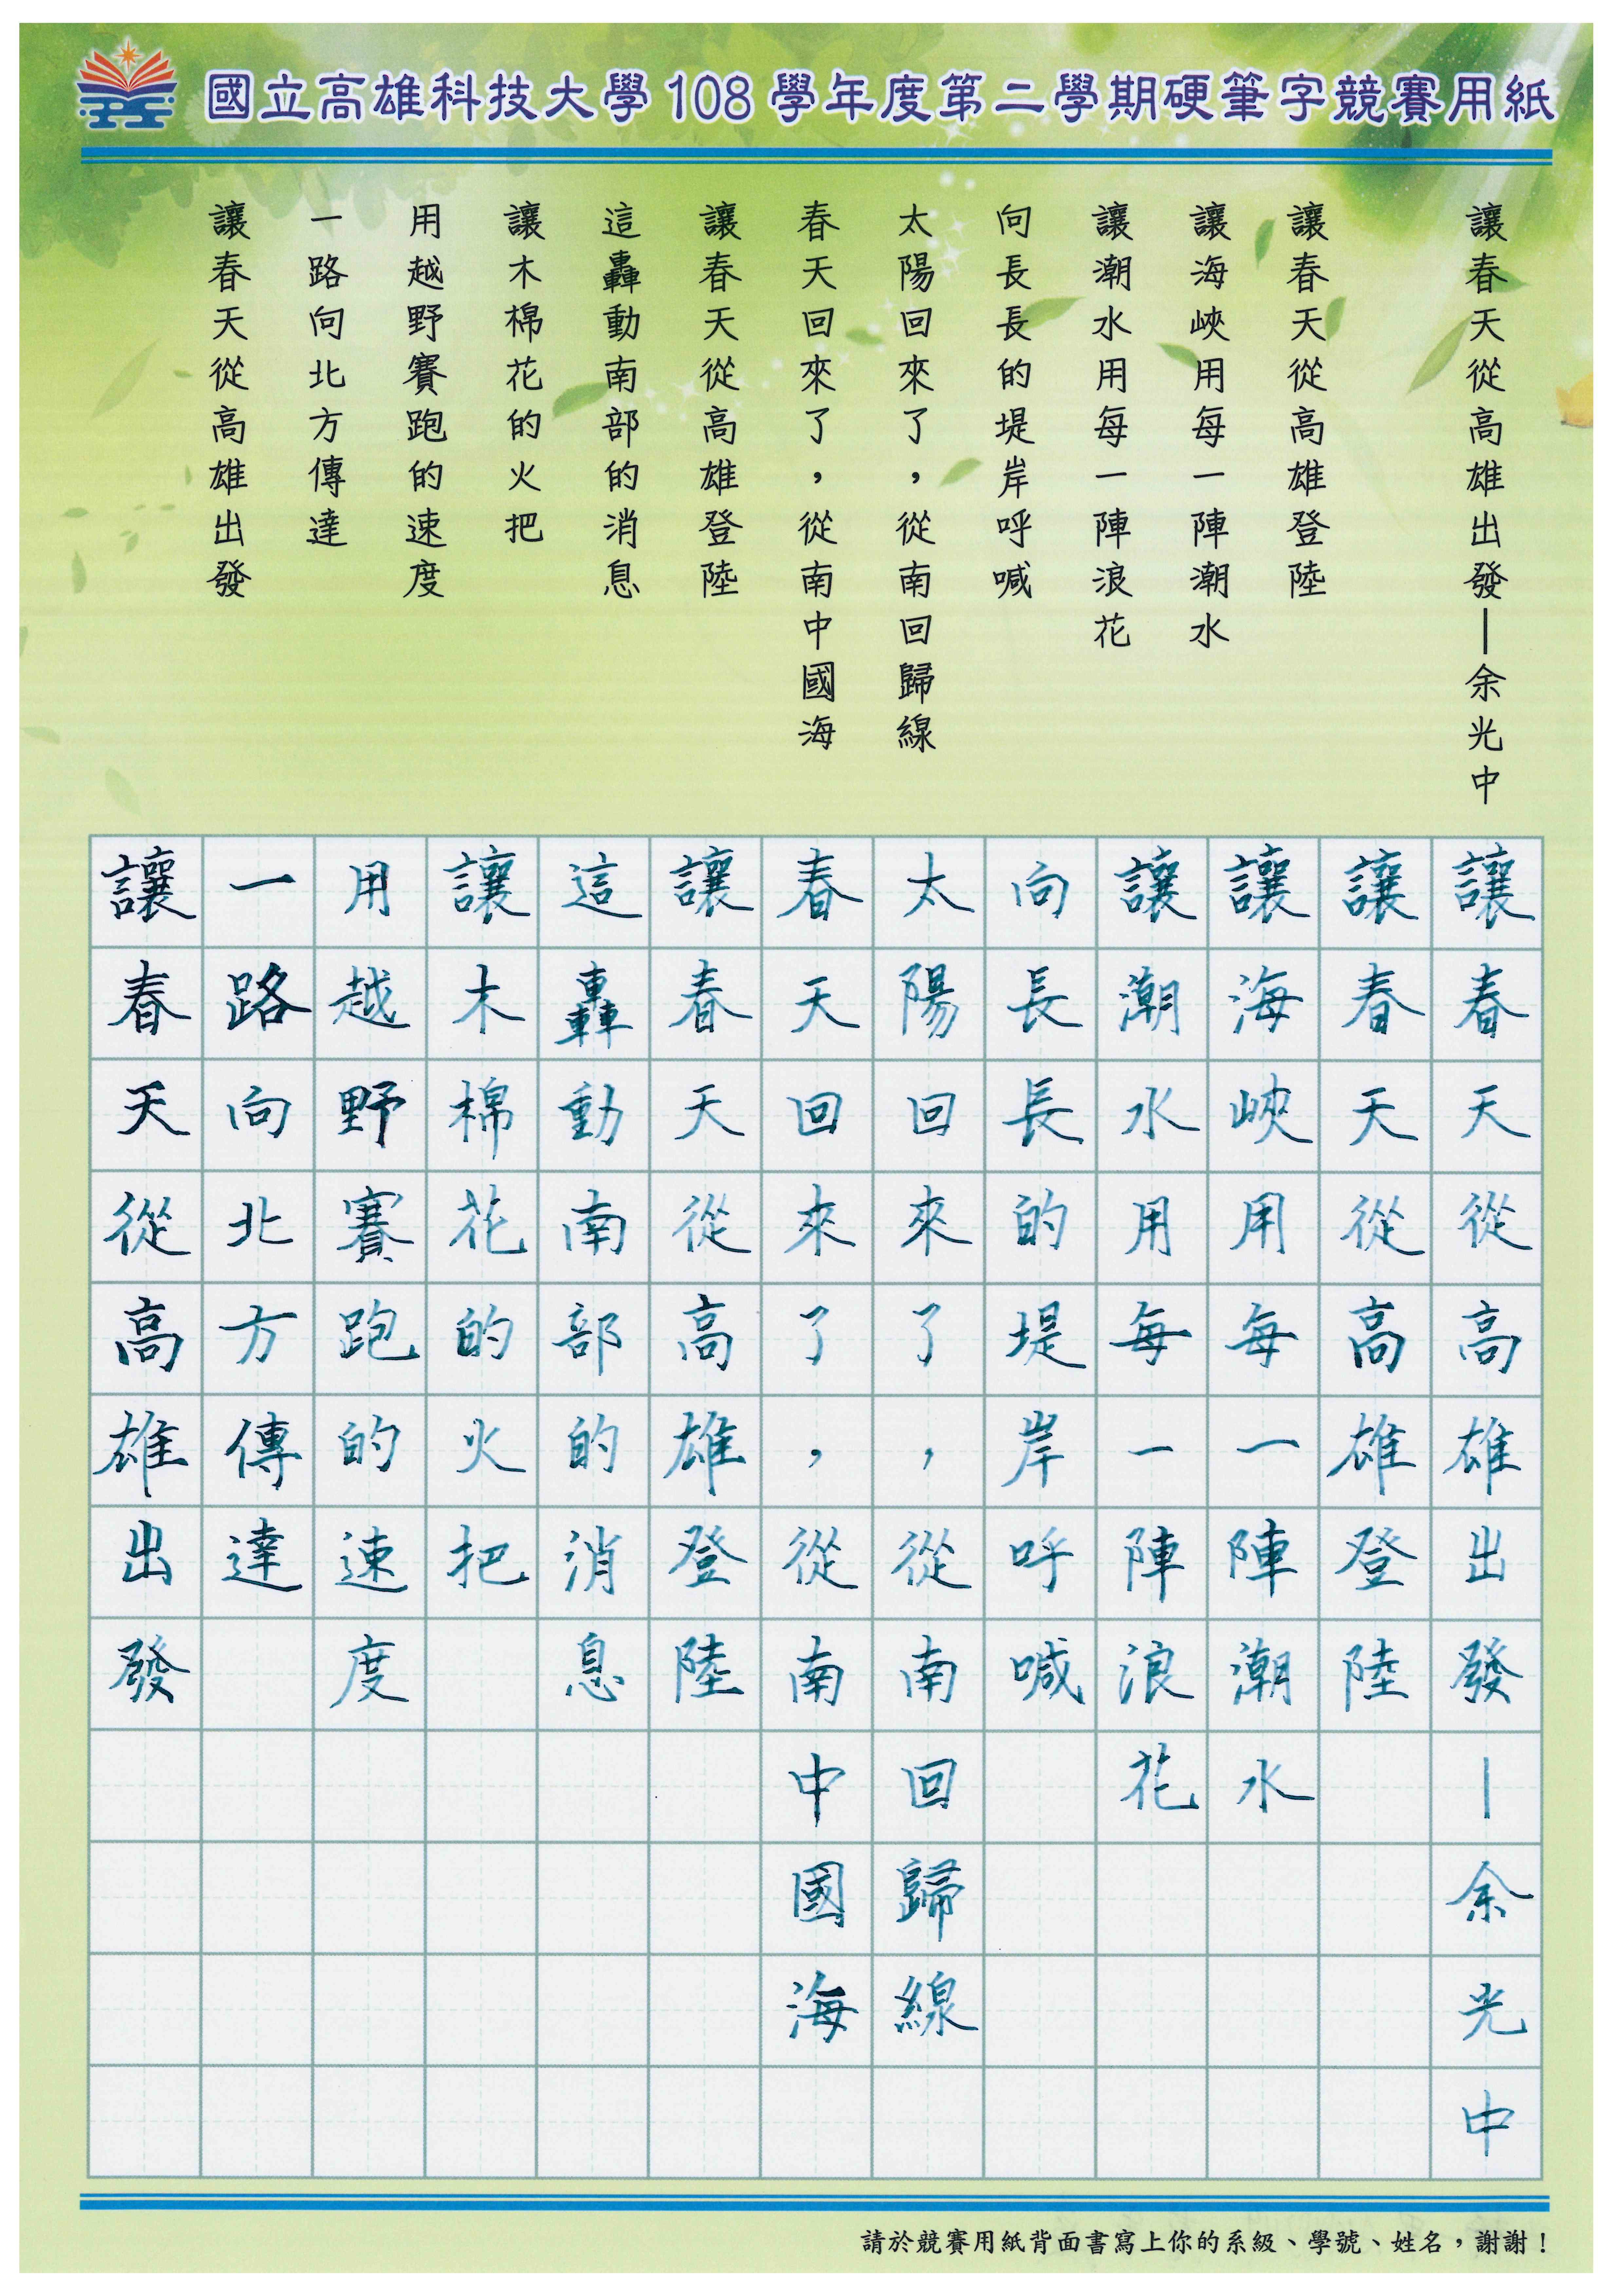 國立高雄科技大學108學年度第二學期硬筆字競賽用紙
讓春天從高雄出發—余光中
讓春天從高雄登陸
讓海峽用每一陣潮水
讓潮水用每一陣浪花
向長長的堤岸呼喊
太陽回來了，從南回歸線
春天回來了，從南中國海
讓春天從高雄登陸
這轟動南部的消息
讓木棉花的火把
用越野賽跑的速度
一路向北方傳達
讓春天從高雄出發
讓春天從高雄出發—余光中
讓春天從高雄登陸
讓海峽用每一陣潮水
讓潮水用每一陣浪花
向長長的堤岸呼喊
太陽回來了，從南回歸線
春天回來了，從南中國海
讓春天從高雄登陸
這轟動南部的消息
讓木棉花的火把
用越野賽跑的速度
一路向北方傳達
讓春天從高雄出發
請於競賽用紙背面書寫上你的系級、學號、姓名，謝謝！